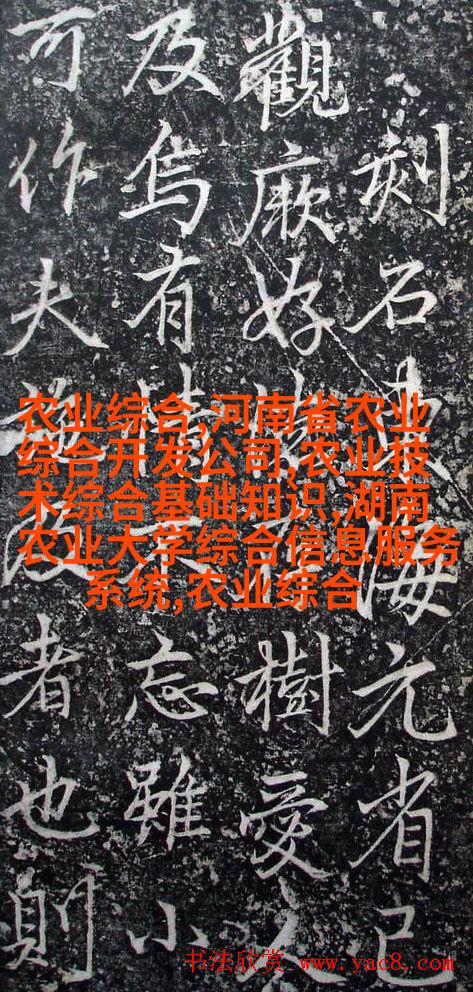 刻石海元省已
觀厥好樹愛
及烏有情忘雖小
可作夫者也則
农业综合,河南省农业
综合开发公司,农业技
术综合基础知识,湖南
农业大学综合信息服务
系统,农业综合
书法欣赏 www.yac8.com